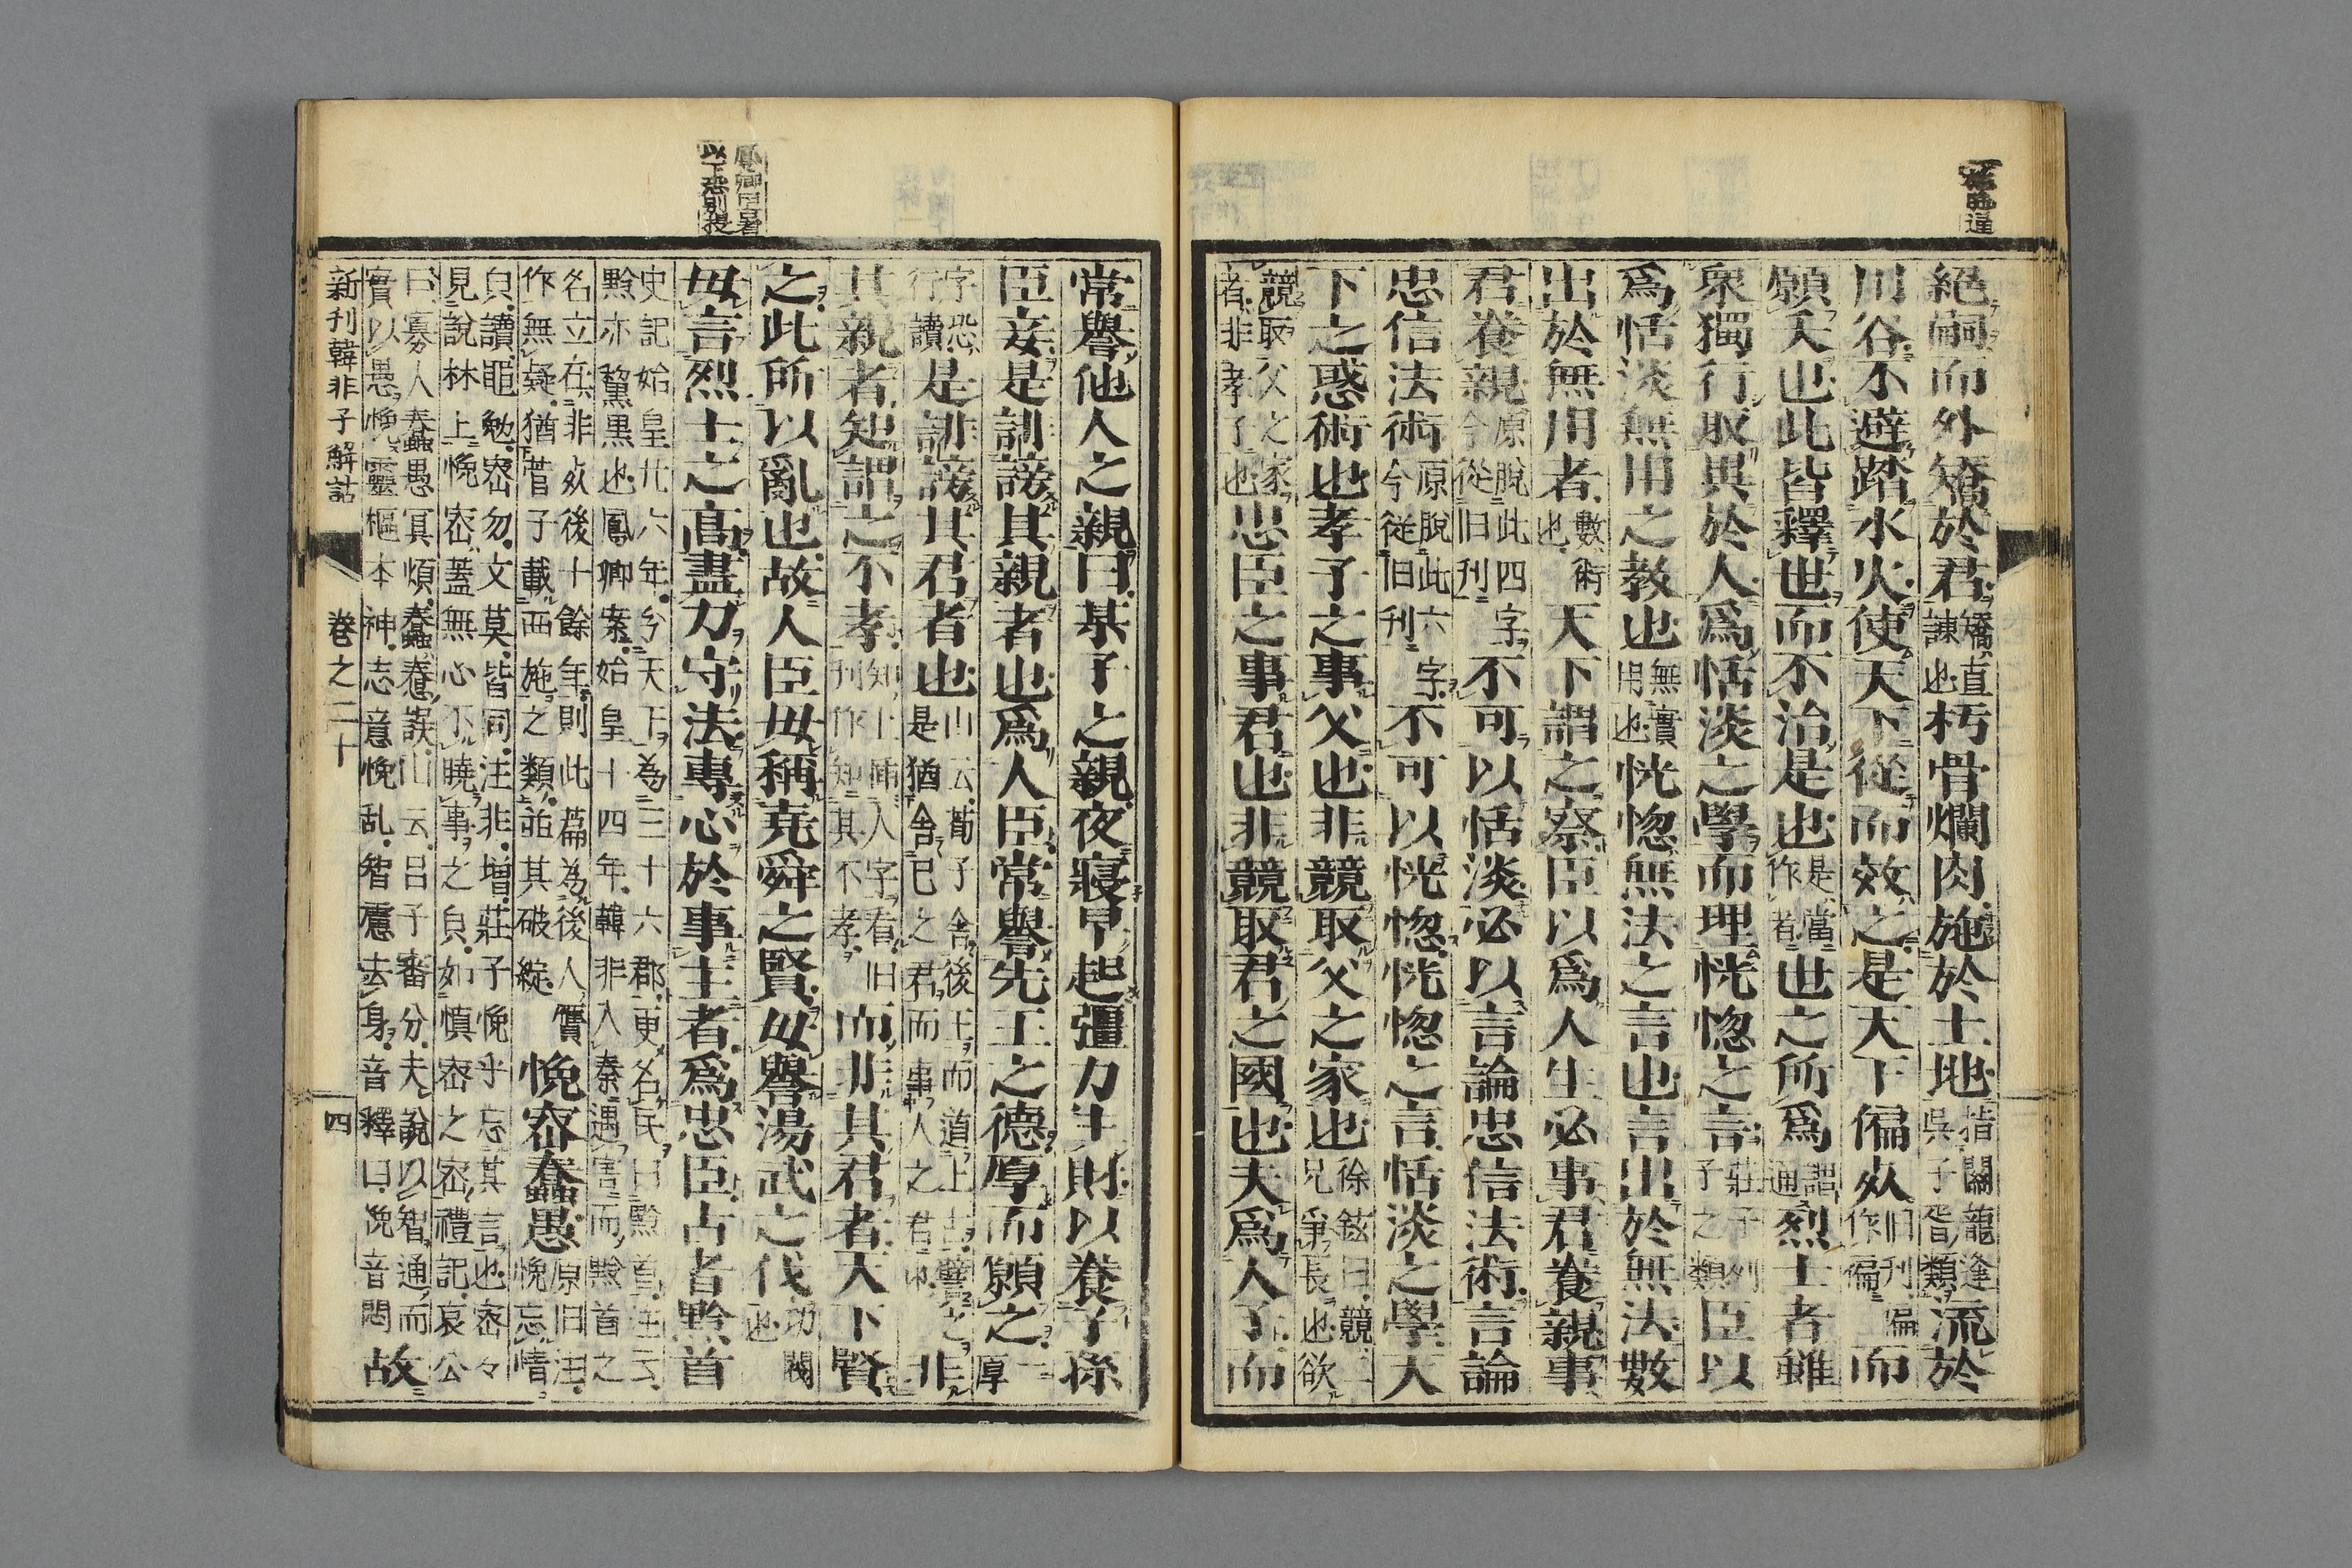 絕嗣而外矯於君矯直諫也朽骨爛肉施於土地指關龍逢吳子胥類流於
川谷不避蹈水火使天下從而效之是天下徧死旧刊徧作偏而
願夭也此皆釋世而不治是也是當作者世之所爲謂通烈士者雖
衆獨行取異於人爲恬淡之學而理恍惚之言莊子列子之類臣以
爲恬淡無用之教也無實用也恍惚無法之言也言出於無法數
出於無用者數術也天下謂之察臣以爲人生必事君養親事
君養親原脫此四字今從旧刊不可以恬淡必以言論忠信法術言論
忠信法術原脫此六字今從旧刊不可以恍惚恍惚之言恬淡之學天
下之惑術也孝子之事父也非競取父之家也徐鉉曰競二兄爭長也欲
競取父之家者非孝子也忠臣之事君也非競取君之國也夫爲人子而
常譽他人之親曰某子之親夜寢早起彊力生財以養子孫
臣妾是誹謗其親者也爲人臣常譽先王之德厚而願之厚
字恐行讀是誹謗其君者也山云荀子舍後王而道上古譬之是猶舍己之君而事人之君也非
其親者知謂之不孝知上補人字看旧刊作知其不孝而非其君者天下賢
之此所以亂也故人臣毋稱堯舜之賢毋譽湯武之伐功閥也
毋言烈士之高盡力守法專心於事主者爲忠臣古者黔首
史記始皇廿六年分天下為三十六郡更名民曰黔首注云黔亦黧黑也鳳卿案始皇十四年韓非入秦遇害而黔首之
名立在非死後十餘年則此篇為後人贋作無疑猶菅子載西施之類詎其破綻悗密蠢愚原旧注悗忘情
皃讀黽勉密勿文莫皆同注非增莊子悗乎忘其言也密々見說林上悗密蓋無心不曉事之皃如慎密之密禮記哀公
曰寡人蠢愚冥煩蠢蠢惷誤山云呂子審分夫說以智通而實以愚悗靈樞本神志意悗乱智慮去身音釋曰悗音悶故
新刊韓非子解詁 卷之二十 四